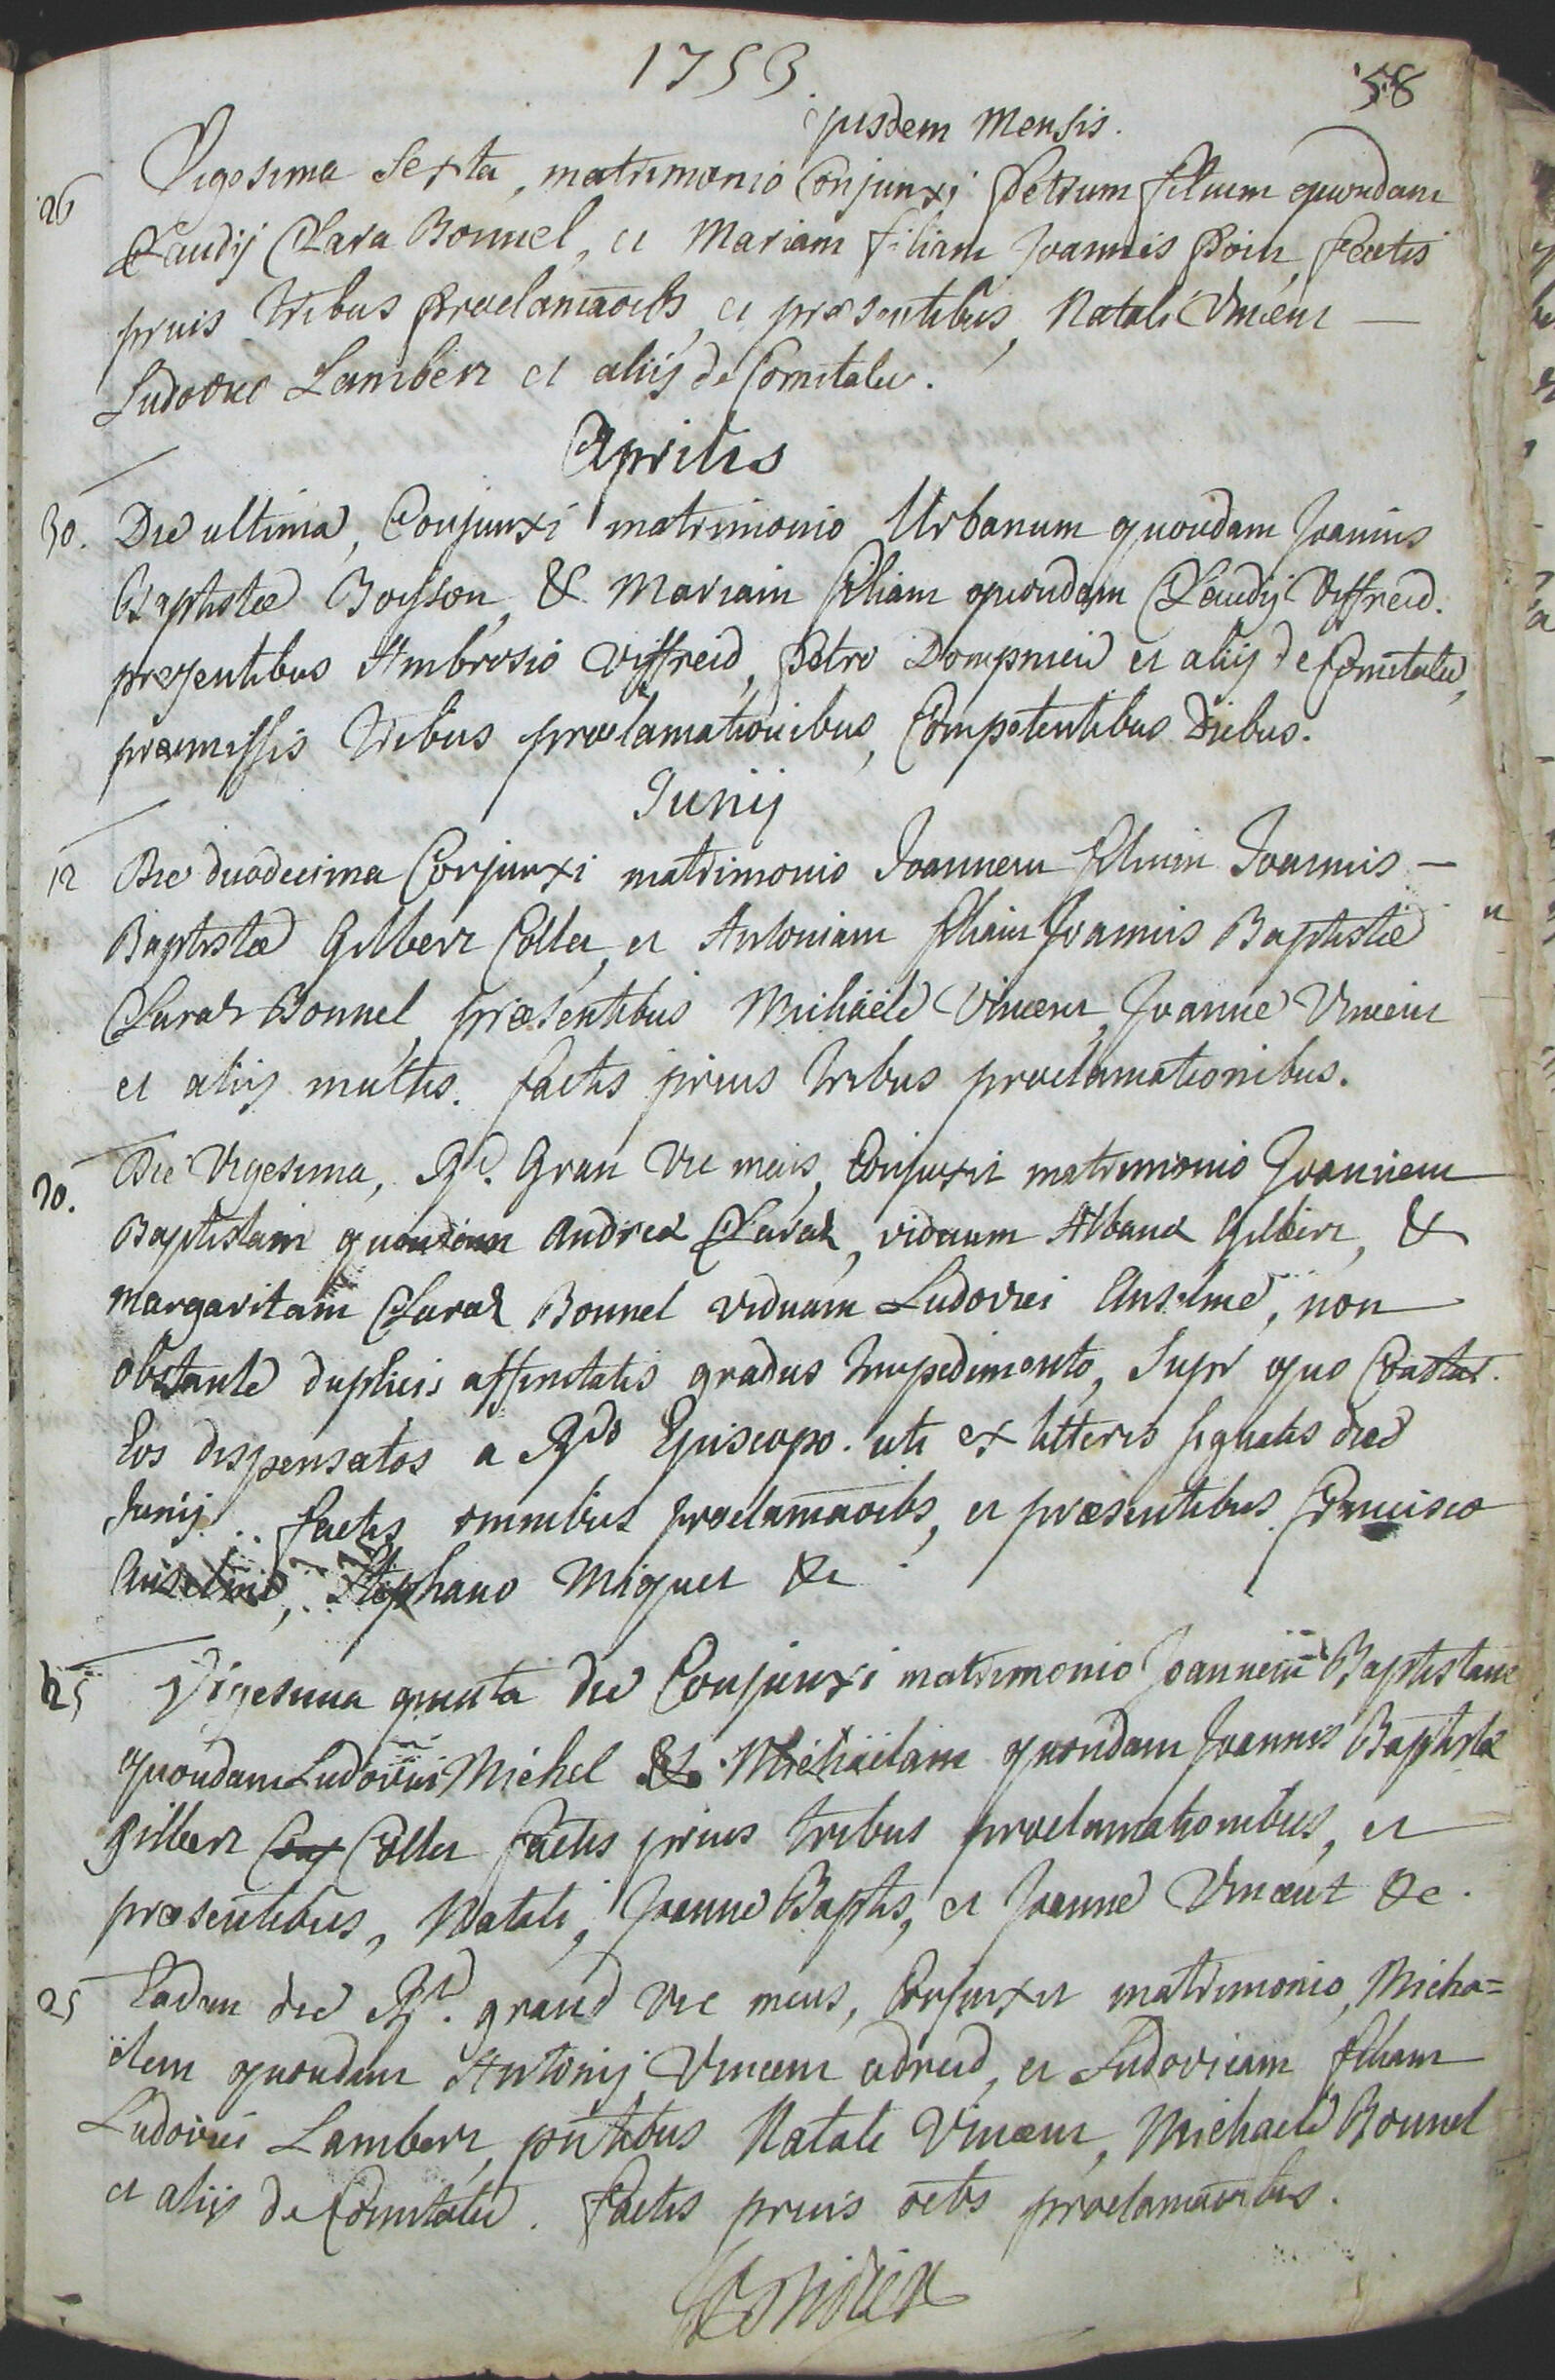 1753
58
ejusdem Mensis.
26 Vigesima Sexta, matrimonio Conjunxi Petrum filium quondam
Claudij Claraz Bonnel, et Mariam filiam Joannis Poin, factis
prius tribus proclamãoibs, et præsentibus, Natali Vincent —
Ludovico Lambert et aliis de Comitatu.
Aprilis
30. Die ultima, Conjunxi matrimonio Urbanum quondam Joannis
Baptistæ Boisson, & Mariam filiam quondam Claudij Viffreid.
presentibus Ambrosio Viffreid, Petro Dompnier et aliis de Comitatu,
præmissis tribus proclamationibus, Competentibus diebus.
Junij
12 Die duodecima Conjunxi matrimonio Joannem filium Joannis —
Baptistæ Gilbert Collet, et Antoniam filiam Joannis Baptistæ
Claraz Bonnel, præsentibus Michaële Vincent, Joanne Vincent
et aliis multis. factis prius tribus proclamationibus.
20. Die Vigesima, Rd. Gran Vic meus, Conjunxit matrimonio Joannem
Baptistam quondam Andreæ Claraz, viduum Albanæ Gilbert, &
Margaritam Claraz Bonnel viduam Ludovici Anselme, non
obstante duplicis affinitatis gradus impedimento, Supr quo Constat.
Eos dispensatos a Rdo Episcopo. uti ex litteris signatis die
Junij .. factis omnibus proclamãoibs, et præsentibus Francisco
Anselme, Stephano Miquet &c
25 Vigesima quinta die Conjunxi matrimonio Joannem Baptistam
quondam Ludovici Michel & Michaëlam quondam Joannis Baptistæ
Gilbert Collet factis prius tribus proclamationibus, et
præsentibus, Natali, Joanne Baptis, et Joanne Vincent &c.
25 Eadem die Rd. grand Vic meus, Conjunxit matrimonio, Micha=
ëlem quondam Antonij Vincent adreid, et Ludovicam filiam
Ludovici Lambert, pñtibus Natali Vincent, Michaële Bonnel
et aliis de Comitatu. factis prius oibs proclamãoibus.